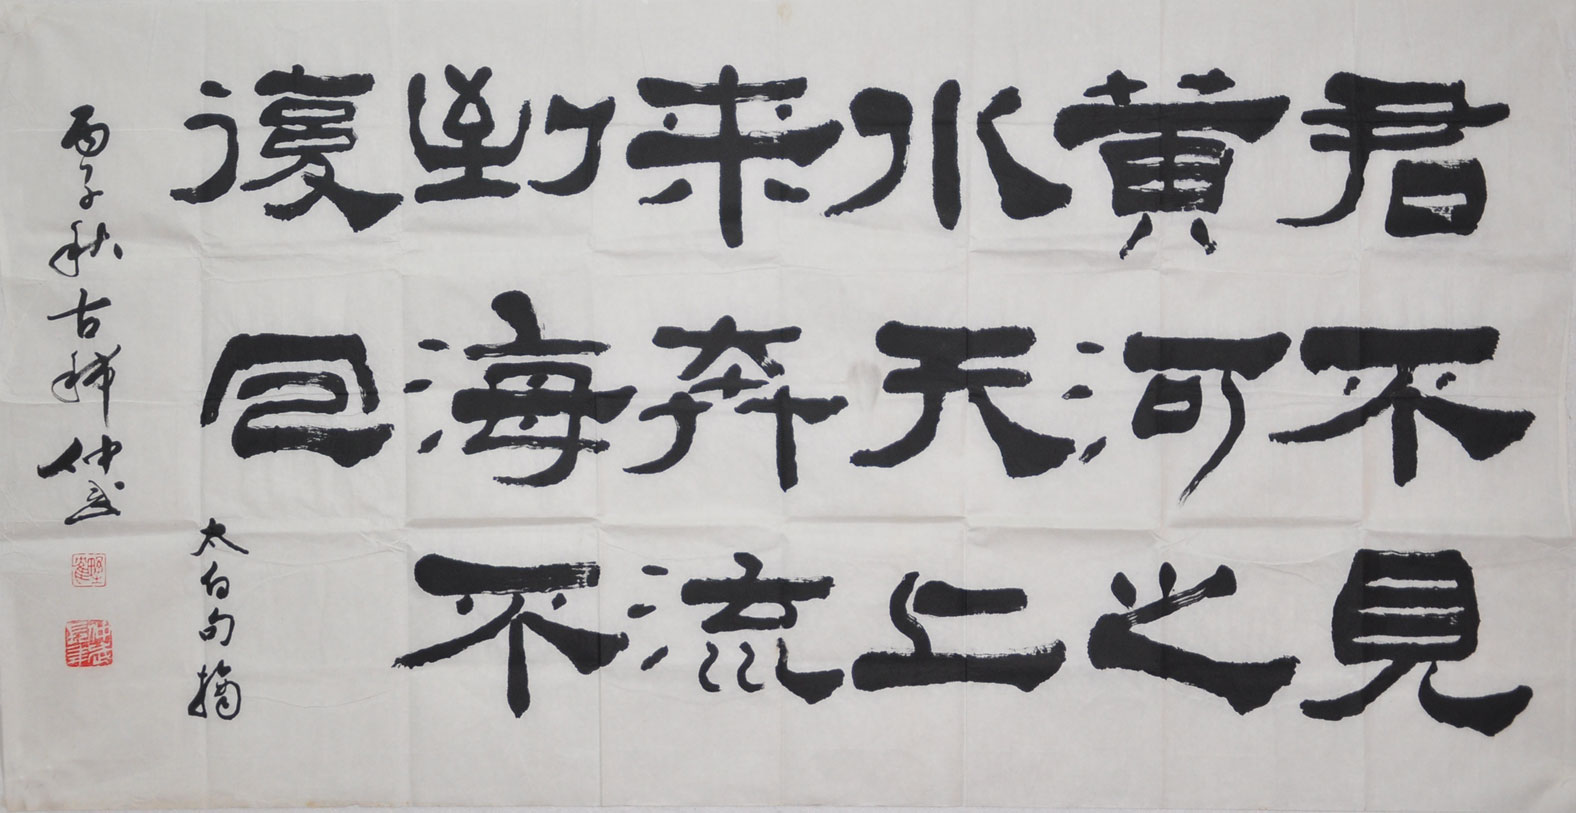 君不見
黄河之
水天上
来奔流
到海不
復回
太白句摘
丙子秋古稀仲武